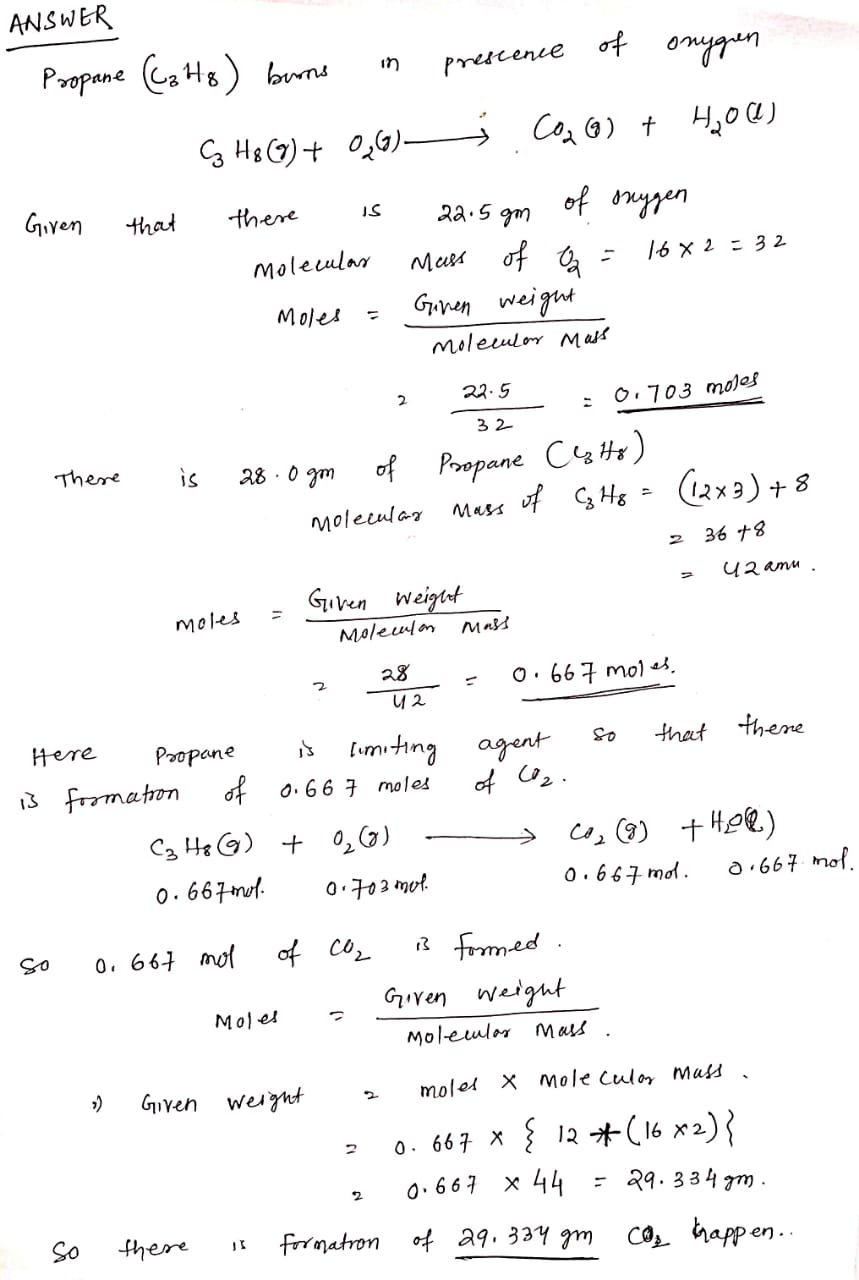 ANSWER
Propane (C3H8) burns in prescence of oxygen
C3H8(g) + O2(g) → CO2(g) + H2O(l)
Given that there is 22.5 gm of oxygen
Molecular Mass of O2 = 16 × 2 = 32
Moles = Given weight / Molecular Mass
= 22.5 / 32 = 0.703 moles
There is 28.0 gm of Propane (C3H8)
Molecular Mass of C3H8 = (12×3) + 8
= 36 + 8
= 42 amu.
moles = Given weight / Molecular Mass
= 28 / 42 = 0.667 moles.
Here Propane is limiting agent so that there
is formation of 0.667 moles of CO2.
C3H8(g) + O2(g) → CO2(g) + H2O(l)
0.667mol. 0.703mol. 0.667mol. 0.667 mol.
So 0.667 mol of CO2 is formed.
Moles = Given weight / Molecular Mass.
⇒ Given weight = moles × Molecular Mass.
= 0.667 × { 12 * (16 ×2)}
= 0.667 × 44 = 29.334 gm.
So there is formation of 29.334 gm CO2 happen..